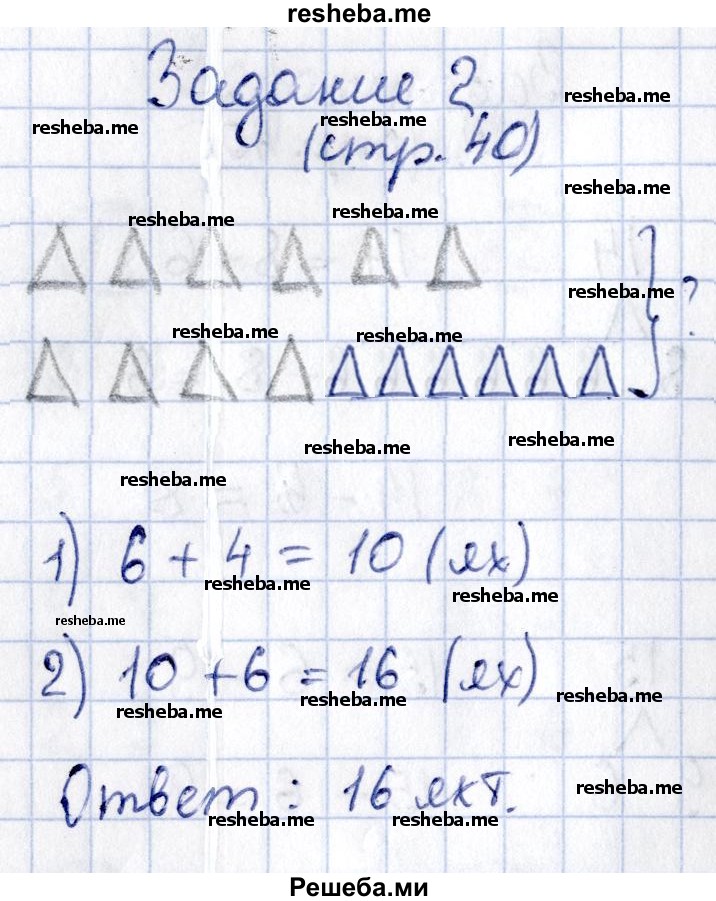 resheba.me
Задание 2
resheba.me
resheba.me resheba.me
(стр. 40)
resheba.me
resheba.me resheba.me
resheba.me ?
resheba.me resheba.me
resheba.me resheba.me
resheba.me
1) 6 + 4 = 10 (ях)
resheba.me resheba.me
resheba.me
2) 10 + 6 = 16 (ях)
resheba.me resheba.me resheba.me
Ответ: 16 яхт.
resheba.me
resheba.me resheba.me
Решеба.ми